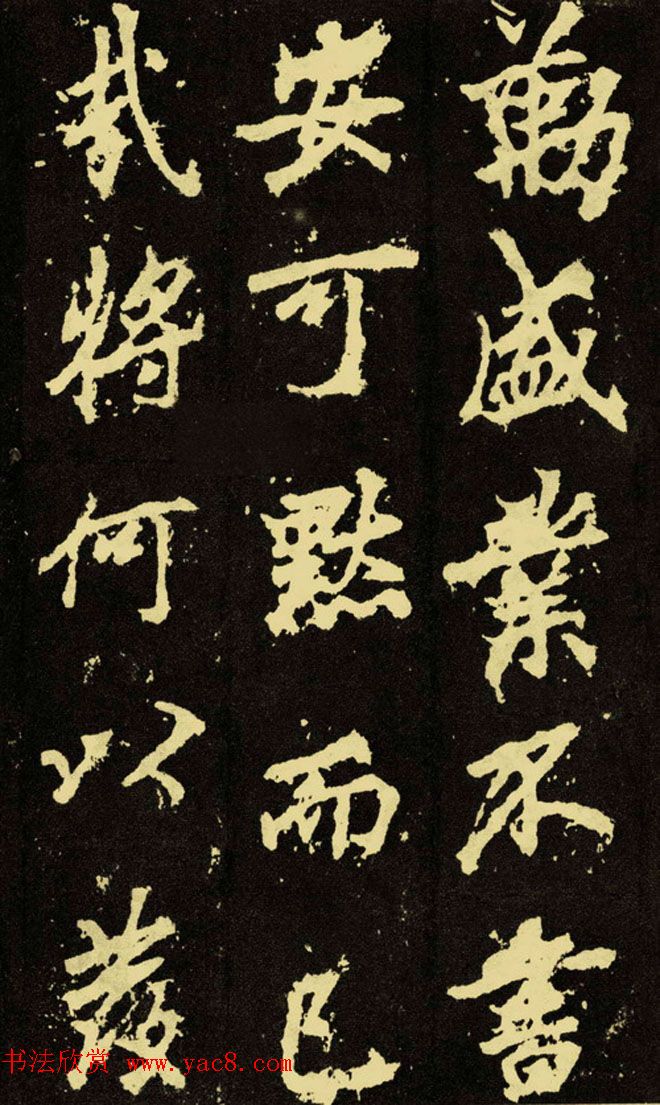 勳盛業不書
安可默而已
哉將何以發
书法欣赏 www.yac8.com